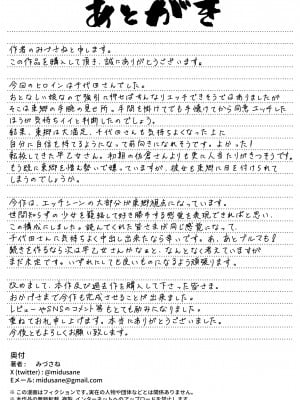 あとがき
作者のみづさねと申します。
この作品を購入して頂き、誠にありがとうございます。
今回のヒロインは千代田さんでした。
おとなしい娘なので強引に押せばすんなりエッチできそうではありましたが
そこは東郷の手腕の見せ所。手間を掛けてでも手懐けてから同意エッチした
ほうが気持ちイイと判断したのでしょう。
結果、東郷は大満足、千代田さんも気持ちよくなった上に
自分に自信を持てるようになって前向きになれそうです。よかった！
転校してきた早乙女さん、初期の佐倉さんよりも更に人当たりがきつそうです。
もう既に東郷を憎み勢いで嫌っていますが、彼女も東郷に目を付けられて
しまうのでしょうか。
今作は、エッチシーンの大部分が東郷視点になっています。
世間知らずの少女を籠絡して好き勝手する感覚を表現できればと思い、
この構成にしました。読んでくれた皆さまが同じ感覚になって、
千代田さんに気持ちよく中出し出来たなら幸いです。あ、あとブルマも！
続きを作るなら次は早乙女さんかなぁと、なんとなく考えていますが
まだ未定です。いずれにしても良いものになるよう頑張ります。
改めまして、本作及び過去作を購入して下さった皆さま。
おかげさまで今作も完成させることが出来ました。
レビューやSNSのコメント等もとても励みになりました。
重ねてお礼申し上げます。本当にありがとうございました。
今後ともよろしくお願い致します。
奥付
著者：　みづさね
X (twitter)：@midusane
Eメール：midusane@gmail.com
※この漫画はフィクションです。実在の人物や団体などとは関係ありません。
※本作品の無断転載、複製、インターネットへのアップロードを禁止します。